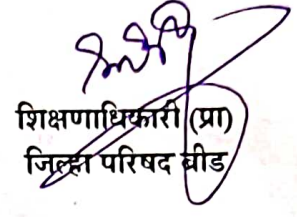 शिक्षणाधिकारी (प्रा)
जिल्हा परिषद बीड